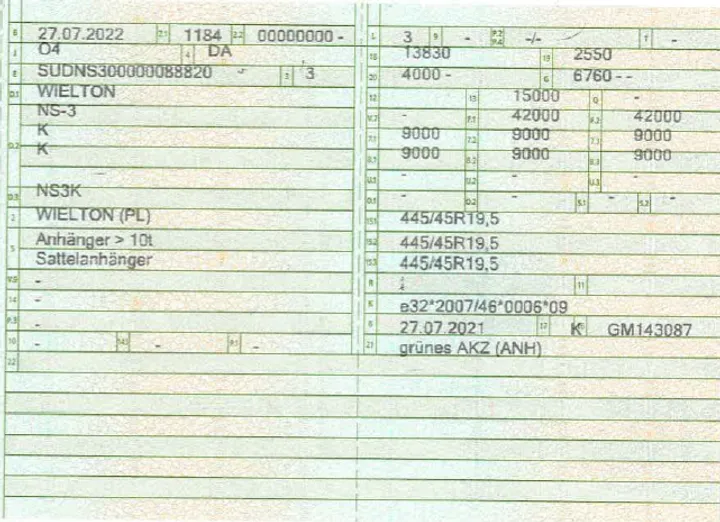 B 27.07.2022 2.1 1184 2.2 00000000 -
J O4 4 DA
E SUDNS300000088820 - 3 3
D.1 WIELTON
NS-3
K
D.2 K
D.3 NS3K
2 WIELTON (PL)
5 Anhänger > 10t
Sattelanhänger
V.9 -
14 -
P.3 -
10 - 14.1 - P.1 -
22
L 3 9 - P.2 P.4 -/- T -
18 13830 19 2550
20 4000 - G 6760 - -
12 13 15000 Q -
V.7 - F.1 42000 F.2 42000
7.1 9000 7.2 9000 7.3 9000
8.1 9000 8.2 9000 8.3 9000
U.1 - U.2 - U.3 -
O.1 - O.2 - S.1 - S.2 -
15.1 445/45R19,5
15.2 445/45R19,5
15.3 445/45R19,5
R 11
K e32*2007/46*0006*09
6 27.07.2021 17 K 16 GM143087
21 grünes AKZ (ANH)